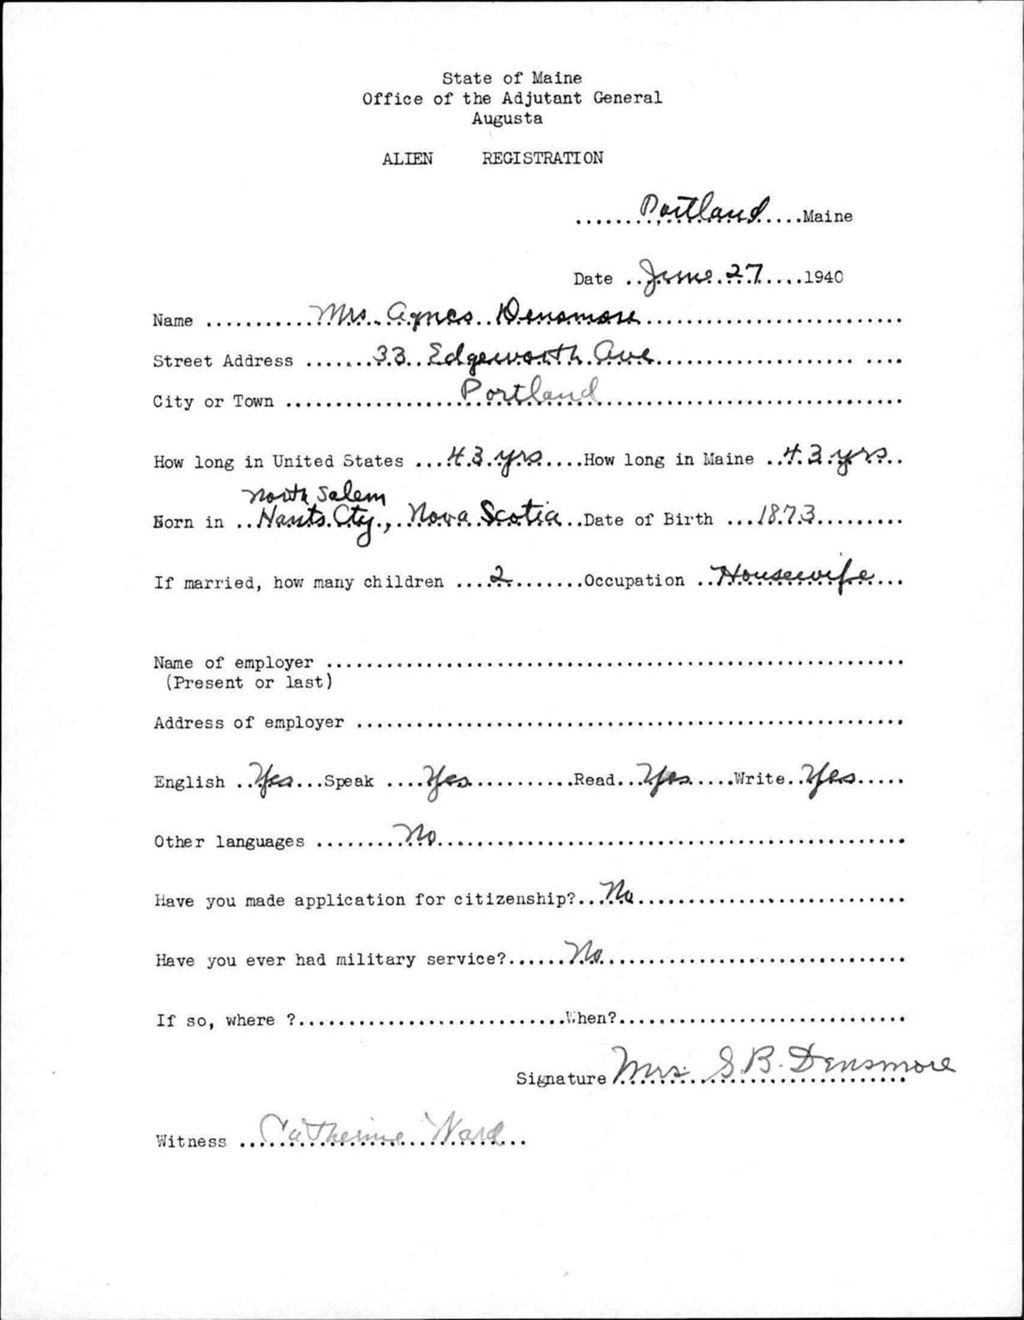 State of Maine
Office of the Adjutant General
Augusta
ALIEN REGISTRATION
......Portland....Maine
Date ..June 27....1940
Name ...........Mrs. Agnes Densmore...........................
Street Address .......33 Edgeworth Ave........................ ....
City or Town ..................Portland...............................
How long in United States ...43 yrs....How long in Maine ..43 yrs..
North Salem
Born in ..Hants Cty., Nova Scotia..Date of Birth ...1873.........
If married, how many children ....2.......Occupation ..Housewife...
Name of employer ..........................................................
(Present or last)
Address of employer .......................................................
English ..Yes...Speak ....Yes..........Read...Yes.....Write..Yes.....
Other languages ........No...............................................
Have you made application for citizenship?...No...........................
Have you ever had military service?......No..............................
If so, where ?...........................When?.............................
Signature Mrs. S. B. Densmore
Witness ....Catherine Ward...